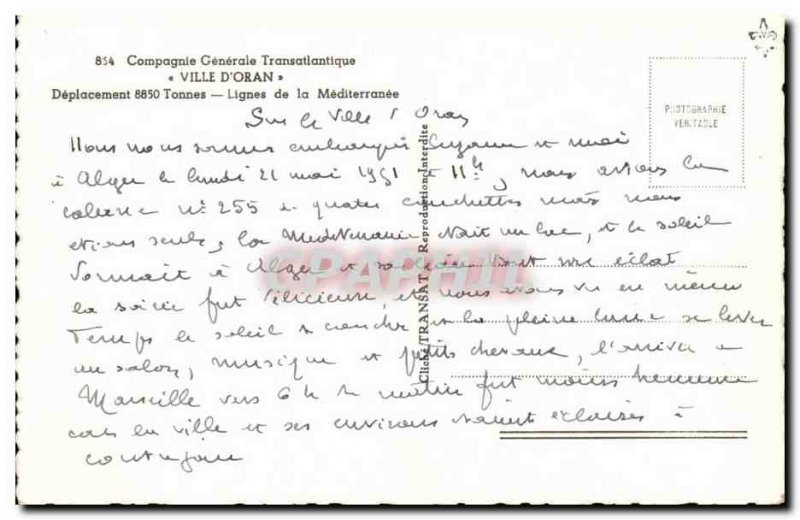 854 Compagnie Générale Transatlantique
« VILLE D'ORAN »
Déplacement 8850 Tonnes — Lignes de la Méditerranée
PHOTOGRAPHIE
VERITABLE
Cliché TRANSAT - Reproduction Interdite
Sur le Ville d'Oran
Nous nous sommes embarqués Suzanne et moi
à Alger le lundi 21 mai 1951 à 11h, nous avions la
cabine n° 255 à quatre couchettes mais nous
étions seuls, la Méditerranée était un lac, et le soleil
donnait à Alger et
tout son éclat
la soirée fut délicieuse, et nous avons vu en même
temps le soleil se coucher et la pleine lune se lever
au salon, musique et petits chevaux, l'arrivée à
Marseille vers 6h du matin fut moins
car la ville et ses environs étaient éclairés à
contrejour
CPAPHIL